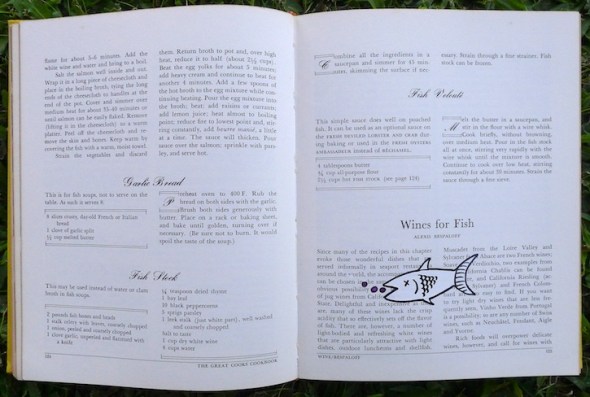 flame for about 5-6 minutes. Add the
white wine and water and bring to a boil.
Salt the salmon well inside and out.
Wrap it in a long piece of cheesecloth and
place in the boiling broth, tying the long
ends of the cheesecloth to handles at the
end of the pot. Cover and simmer over
medium heat for about 35-40 minutes or
until salmon can be easily flaked. Remove
(lifting it in the cheesecloth) to a warm
platter. Peel off the cheesecloth and re-
move the skin and bones. Keep warm by
covering the fish with a warm, moist towel.
Strain the vegetables and discard
them. Return broth to pot and, over high
heat, reduce it to half (about 2½ cups).
Beat the egg yolks for about 5 minutes;
add heavy cream and continue to beat for
another 4 minutes. Add a few spoons of
the hot broth to the egg mixture while con-
tinuing beating. Pour the egg mixture into
the broth; heat; add raisins or currants;
add lemon juice; heat almost to boiling
point; reduce fire to lowest point and, stir-
ring constantly, add beurre manié, a little
at a time. The sauce will thicken. Pour
sauce over the salmon; sprinkle with pars-
ley, and serve hot.
Garlic Bread
This is for fish soups, not to serve on the
table. As such it serves 8.
8 slices crusty, day-old French or Italian
bread
1 clove of garlic split
½ cup melted butter
Preheat oven to 400 F. Rub the
bread on both sides with the garlic.
Brush both sides generously with
butter. Place on a rack or baking sheet,
and bake until golden, turning over if
necessary. (Be sure not to burn. It would
spoil the taste of the soup.)
Fish Stock
This may be used instead of water or clam
broth in fish soups.
2 pounds fish bones and heads
1 stalk celery with leaves, coarsely chopped
1 onion, peeled and coarsely chopped
1 clove garlic, unpeeled and flattened with
a knife
¼ teaspoon dried thyme
1 bay leaf
10 black peppercorns
5 sprigs parsley
1 leek stalk (pan white part), well washed
and coarsely chopped
Salt to taste
1 cup dry white wine
6 cups water
THE GREAT COOKS COOKBOOK
Combine all the ingredients in a
saucepan and simmer for 45 min-
utes, skimming the surface if nec-
essary. Strain through a fine strainer. Fish
stock can be frozen.
Fish Velouté
This simple sauce does well on poached
fish. It can be used as an optional sauce on
4 tablespoons butter
¼ cup all-purpose flour
2½ cups hot FISH STOCK (see page 124)
Melt the butter in a saucepan, and
stir in the flour with a wire whisk.
Cook briefly, without browning,
over medium heat. Pour in the fish stock
all at once, stirring very rapidly with the
wire whisk until the mixture is smooth.
Continue to cook over low heat, stirring
constantly for about 30 minutes. Strain the
sauce through a fine sieve.
Wines for Fish
ALEXIS BESPALOFF
Since many of the recipes in this chapter
evoke those wonderful dishes that are
served informally in seaport
around the world, the
can be chosen
obvious
of jug wines from
State. Delightful and
are, many of these wines lack the crisp
acidity that so effectively sets off the flavor
of fish. There are, however, a number of
light-bodied and refreshing white wines
that are particularly attractive with light
dishes, outdoor luncheons and shellfish.
Muscadet from the Loire Valley and
Sylvaner Alsace are two French wines;
Verdicchio, two examples from
California Chablis can be found
and California Riesling (or
Sylvaner) and French Colom-
also easy to find. If you want
to try light dry wines that are less fre-
quently seen, Vinho Verde from Portugal
is a possibility, as are any number of Swiss
wines, such as Neuchâtel, Fendant, Aigle
and Yvorne.
Rich foods will overpower delicate
wines, however, and call for wines with
WINE/BESPALOFF